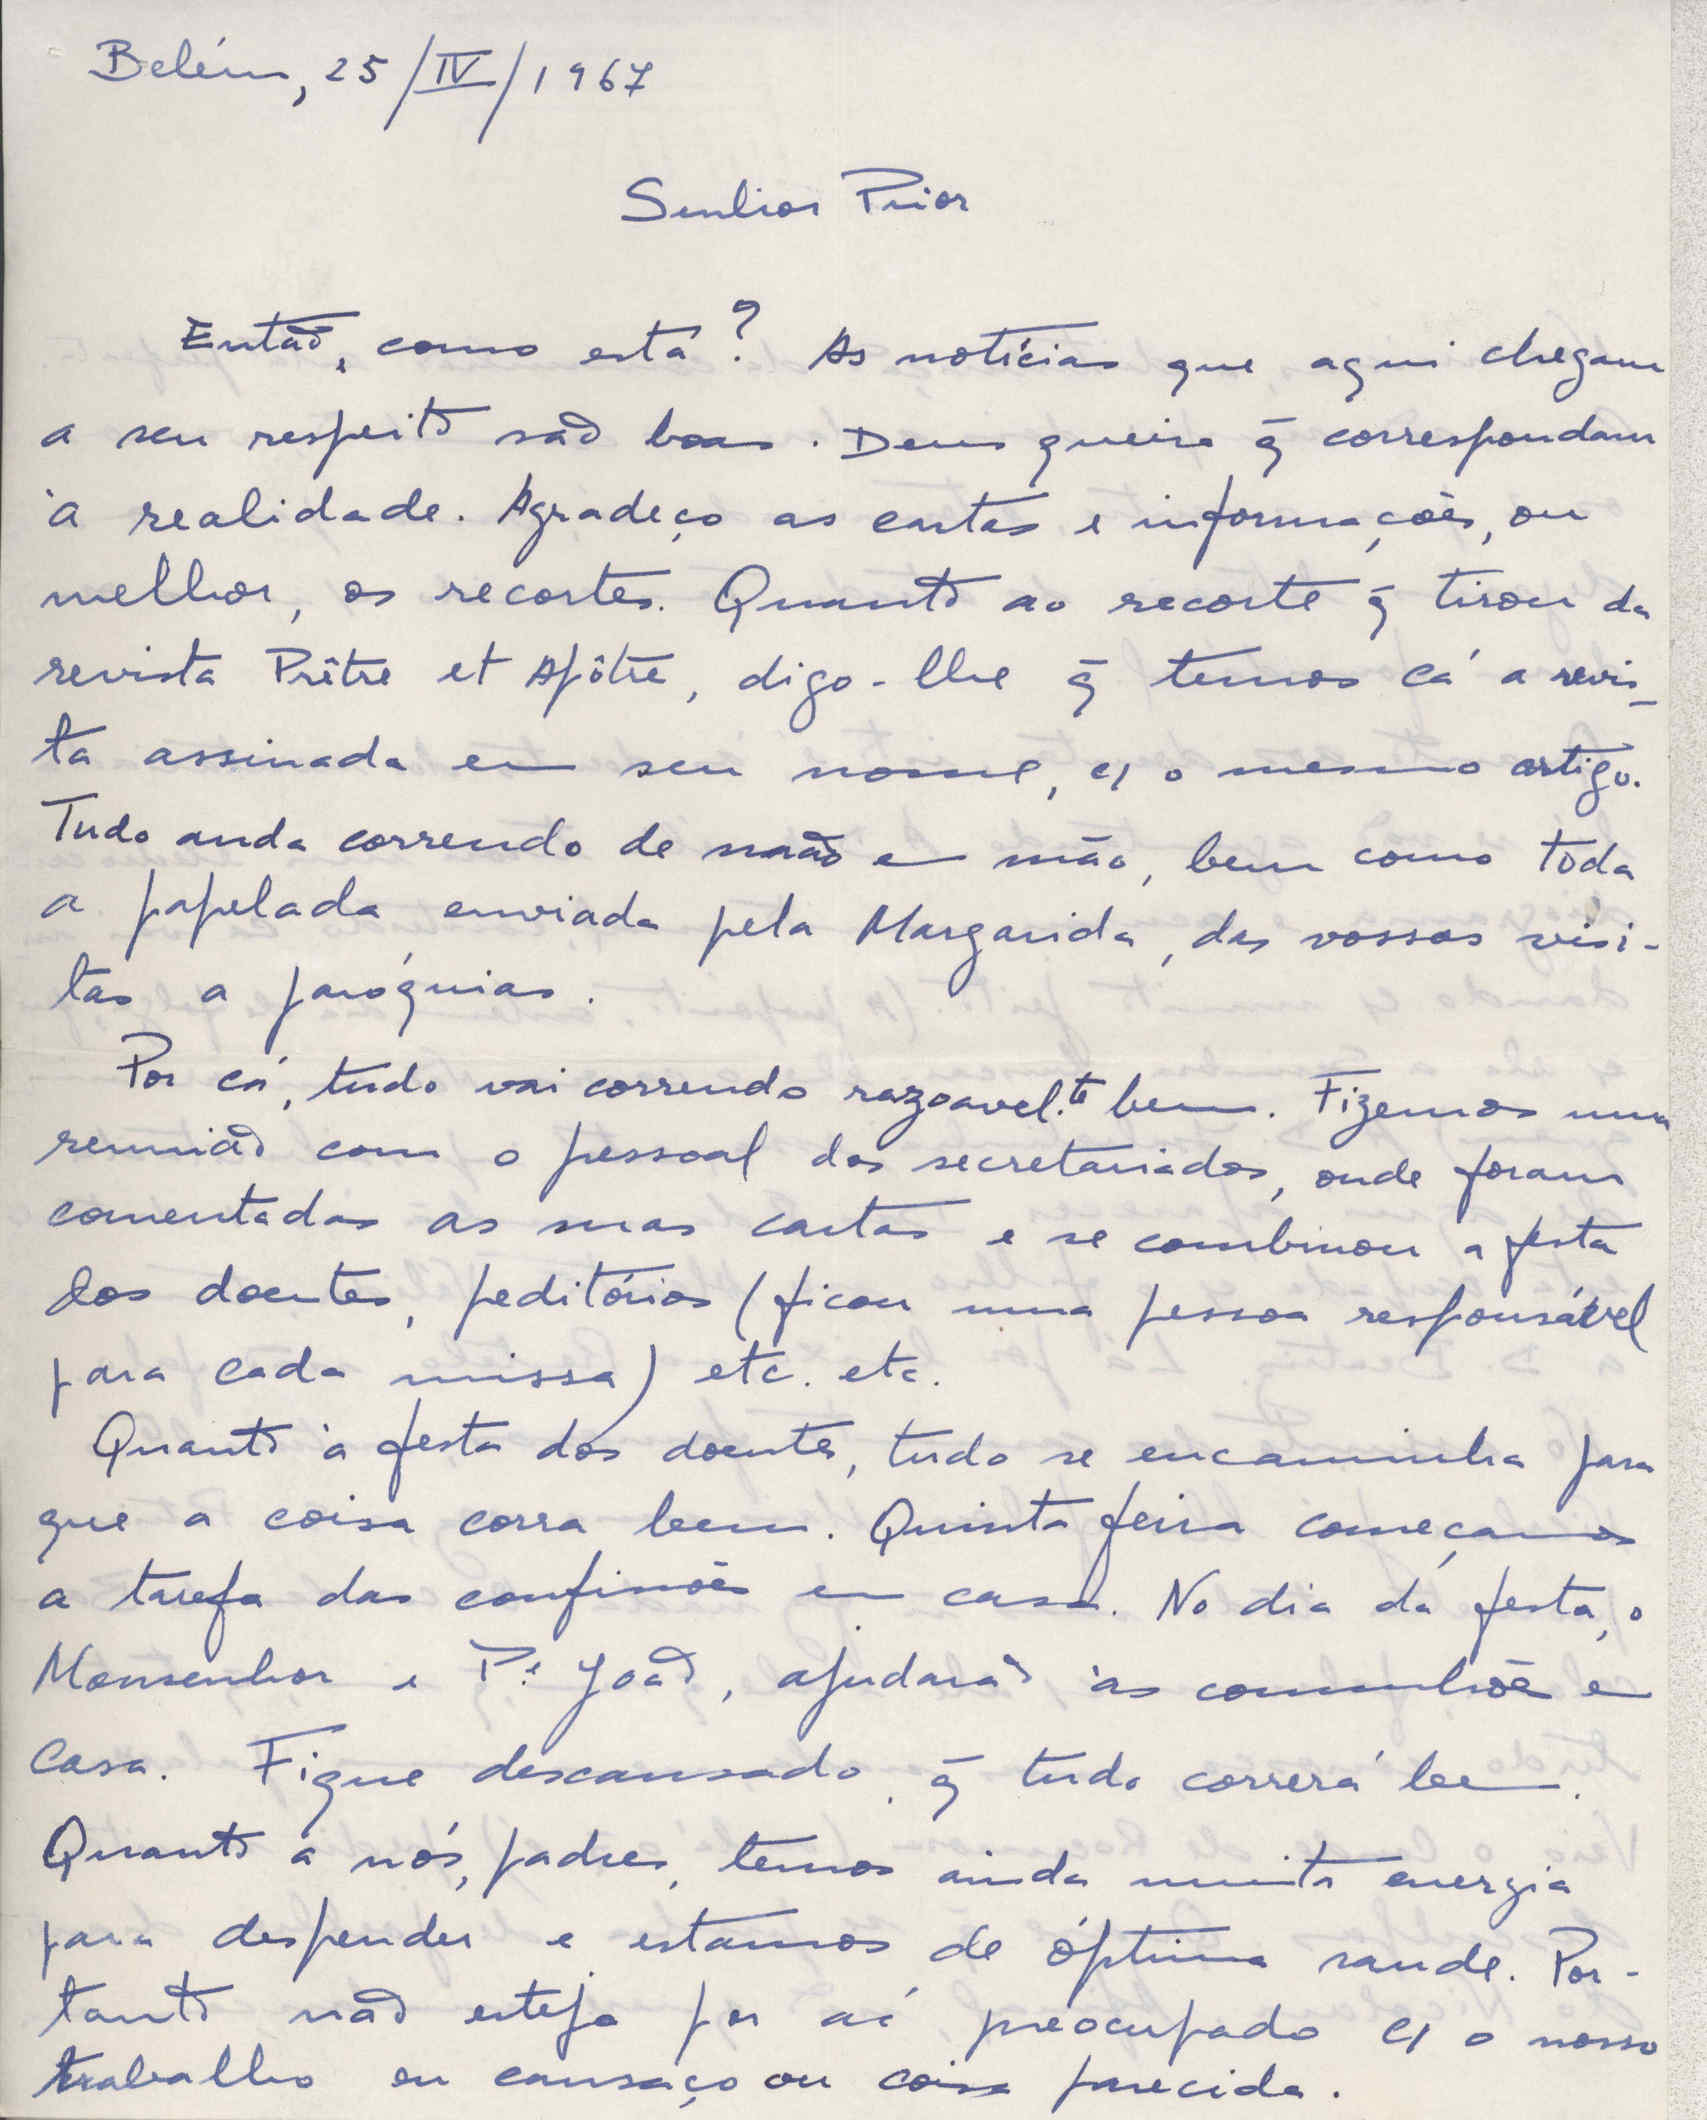 Belém, 25/IV/1967
Senhor Prior
Então, como está? As notícias que aqui chegam
a seu respeito são boas. Deus queira q̃ correspondam
à realidade. Agradeço as cartas e informações, ou
melhor, os recortes. Quanto ao recorte q̃ tirou da
revista Prêtre et Apôtre, digo-lhe q̃ temos cá a revis-
ta assinada em seu nome, c/ o mesmo artigo.
Tudo anda correndo de mão em mão, bem como toda
a papelada enviada pela Margarida, das vossas visi-
tas a paróquias.
Por cá, tudo vai correndo razoavel.te bem. Fizemos uma
reunião com o pessoal dos secretariados, onde foram
comentadas as suas cartas e se combinou a festa
dos doentes, peditórios (ficou uma pessoa responsável
para cada missa) etc. etc.
Quanto à festa dos doentes, tudo se encaminha para
que a coisa corra bem. Quinta feira começamos
a tarefa das confissões em casa. No dia da festa, o
Monsenhor e P.e João, ajudarão às comunhões em
casa. Fique descansado, q̃ tudo correrá bem.
Quanto a nós, padres, temos ainda muita energia
para despender e estamos de óptima saude. Por-
tanto não esteja por aí preocupado c/ o nosso
trabalho ou cansaço ou coisa parecida.